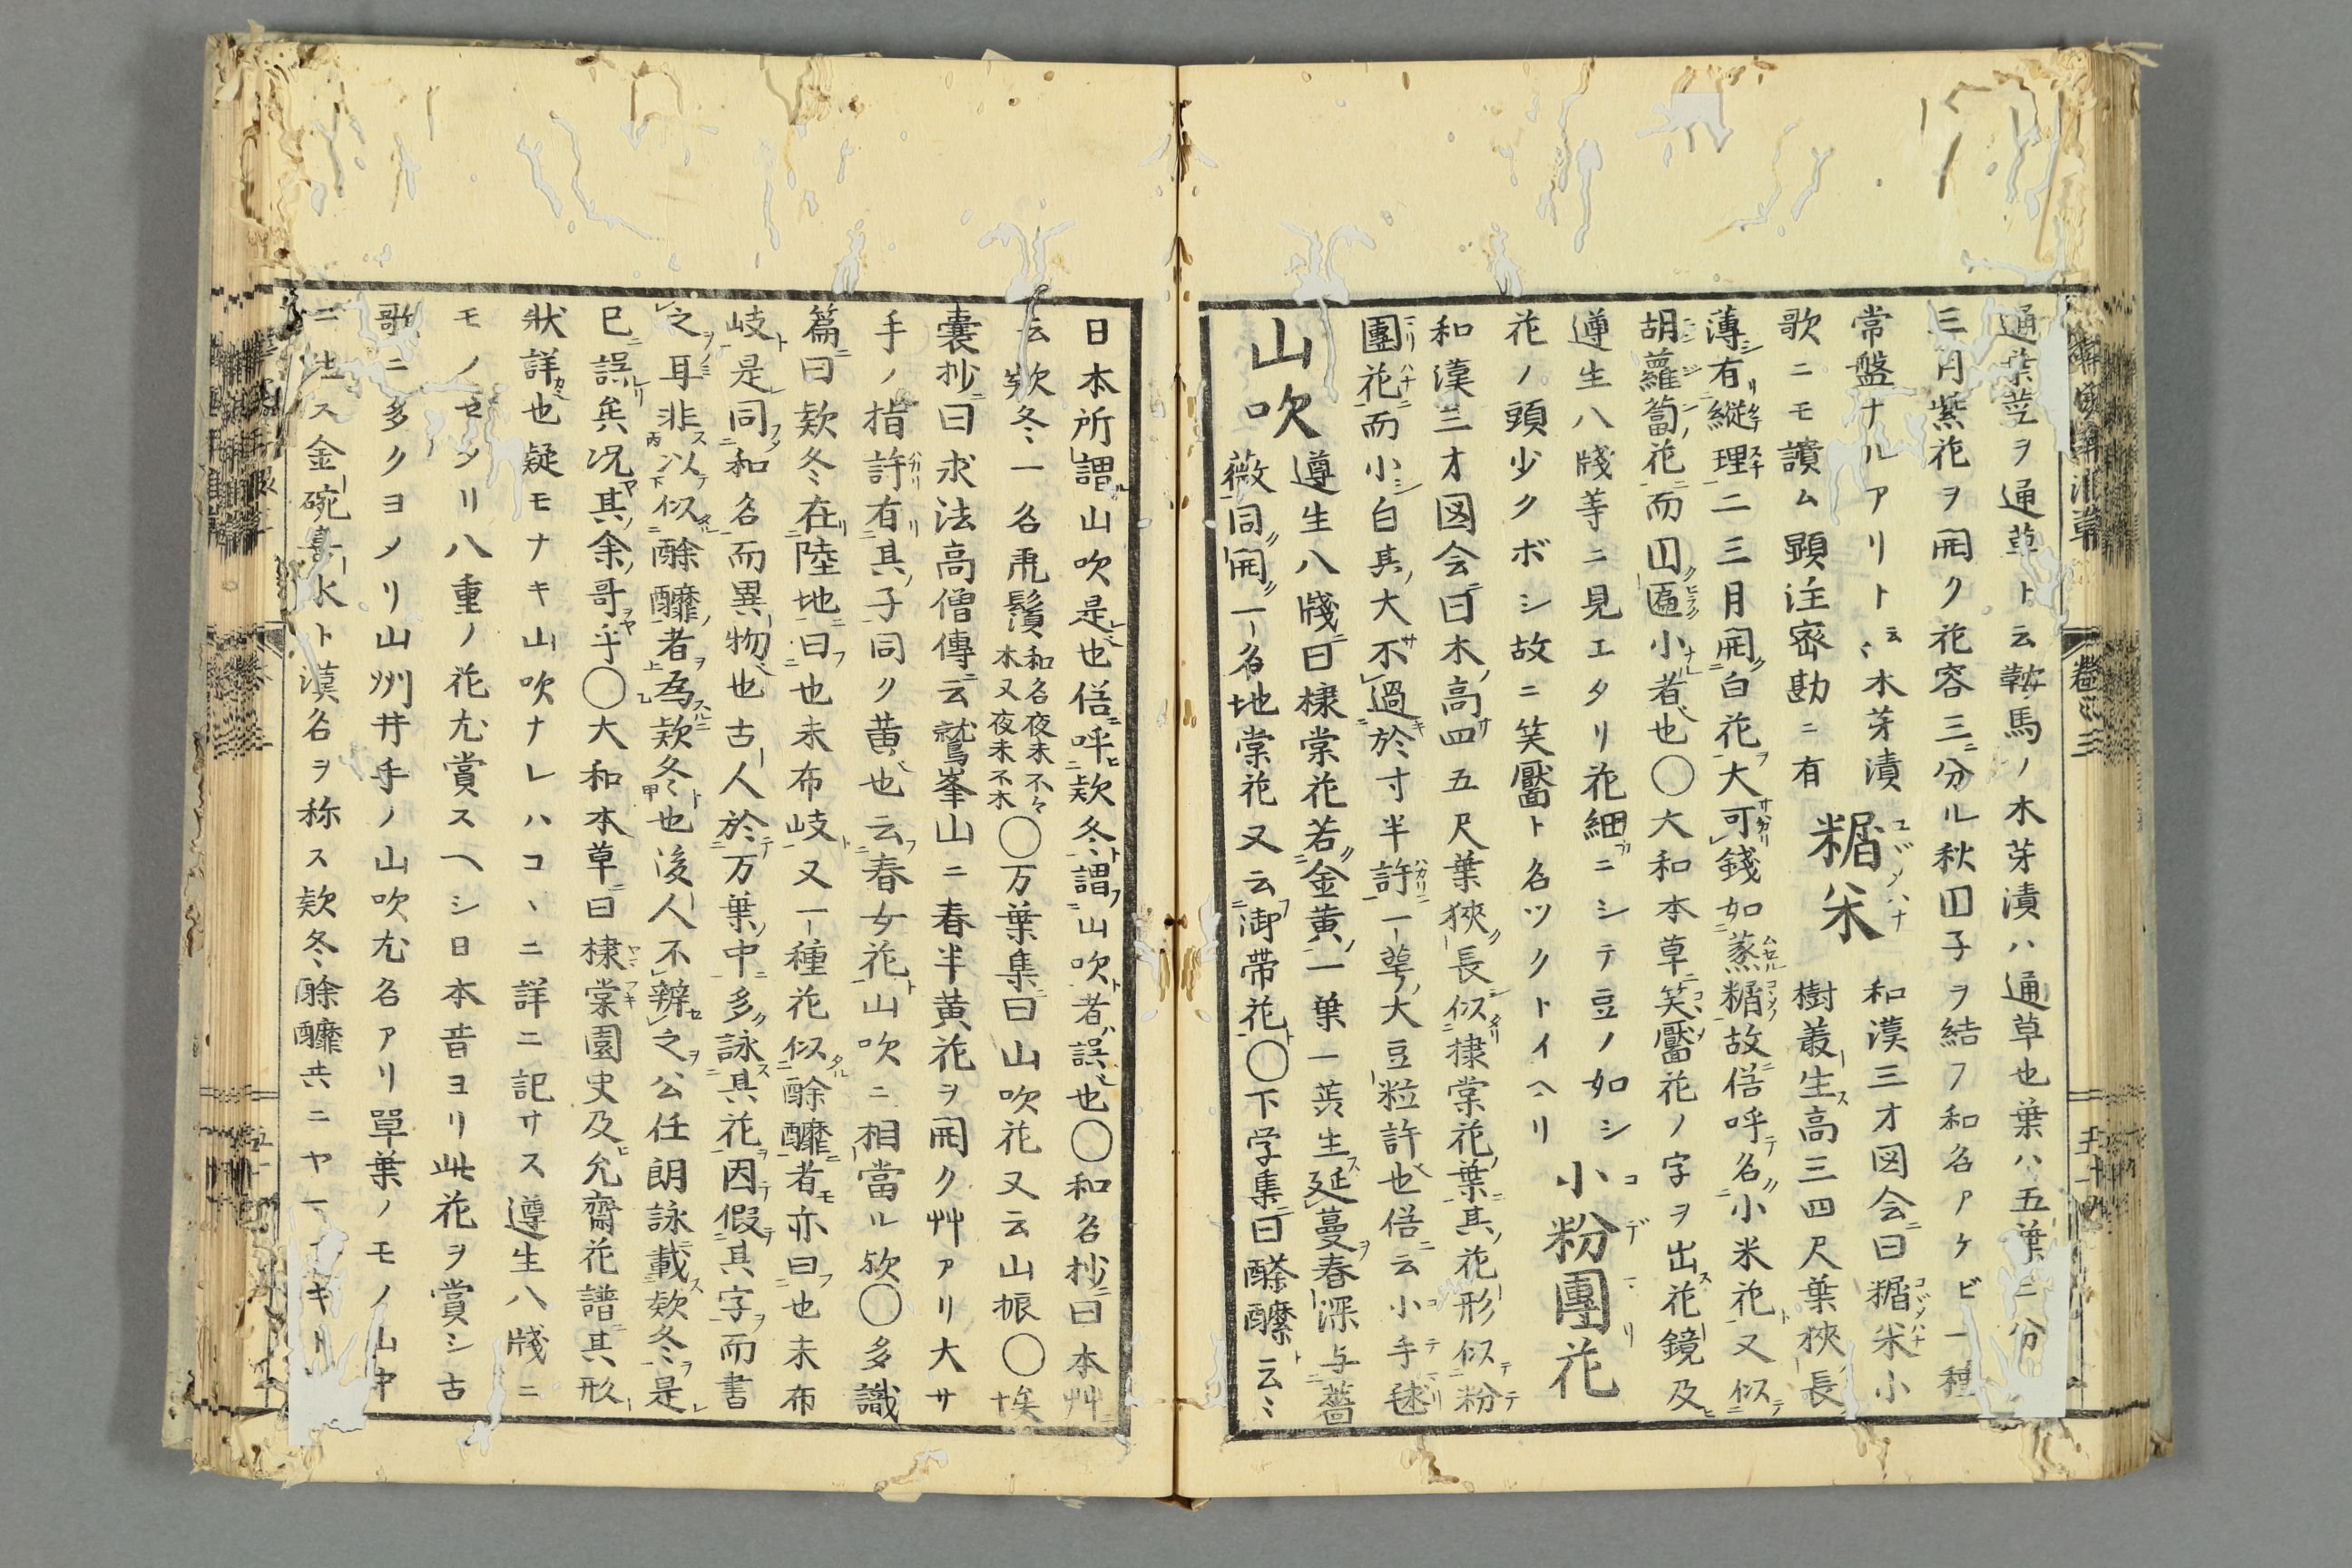 通葉莖ヲ通草ト云鞍馬ノ木芽漬ハ通草也葉ハ五葉ニ分
三月紫花ヲ開ク花容三分ル秋囙子ヲ結フ和名アケビ一種
常盤ナルアリト云〻木芽漬
歌ニモ讀ム顕注密勘ニ有
糏米
和漢三才図会曰糏米小
樹叢生高三四尺葉狹長
薄有縦理二三月開白花大可錢如蒸糏故俗呼名小米花又似
胡蘿蔔花而囙匾小者也〇大和本草笑靨花ノ字ヲ出花鏡及
遵生八牋等ニ見エタリ花細ニシテ豆ノ如シ
花ノ頭少クボシ故ニ笑靨ト名ツクトイヘリ
小粉團花
和漢三才図会曰木高四五尺葉狹長似棣棠花葉其花形似粉
團花而小白其大不過於寸半許一萼大豆粒許也俗云小手毬
山吹
遵生八牋曰棣棠花若金黄一葉一蕊生延蔓春深与薔
薇同開一名地棠花又云御帯花〇下学集曰醛醿云〻
日本所謂山吹是也俗呼款冬謂山吹者誤也〇和名抄曰本艸
云款冬一名虎鬚和名夜末不々木又夜末不木〇万葉集曰山吹花又云山振〇埃
囊抄曰求法高僧傳云鷲峯山ニ春半黄花ヲ開ク艸アリ大サ
手ノ指許有其子同ク黄也云春女花山吹ニ相當ル欤〇多識
篇曰款冬在陸地曰也末布岐又一種花似酴醿者亦曰也末布
岐是同和名而異物也古人於万葉中多詠其花因假其字而書
之耳非以似酴醿者為款冬也後人不辨之公任朗詠載款冬是
已誤矣况其余哥乎〇大和本草曰棣棠園史及允齋花譜其形
狀詳也疑モナキ山吹ナレハコヽニ詳ニ記サス遵生八牋ニ
モノセタリ八重ノ花尤賞スヘシ日本昔ヨリ此花ヲ賞シ古
歌ニ多クヨメリ山州井手ノ山吹尤名アリ單葉ノモノ山中
ニ生ス金碗喜水ト漢名ヲ称ス款冬酴醿共ニヤマフキト